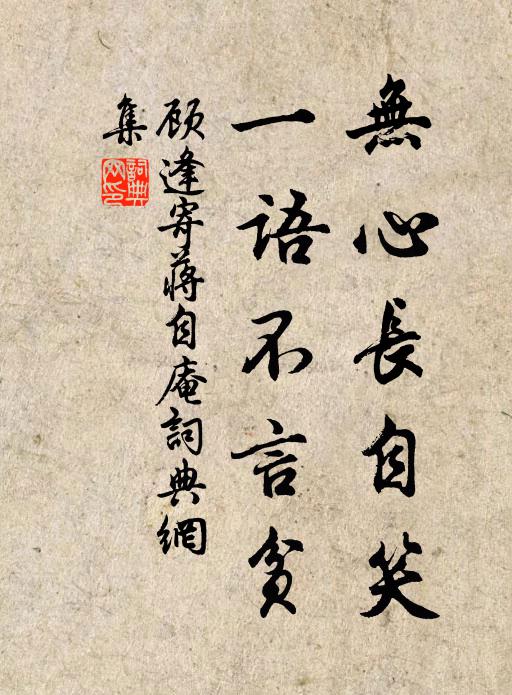 無心長自笑
一語不言貧
顾逢寄蒋自庵詞典網
集
詞典
网印